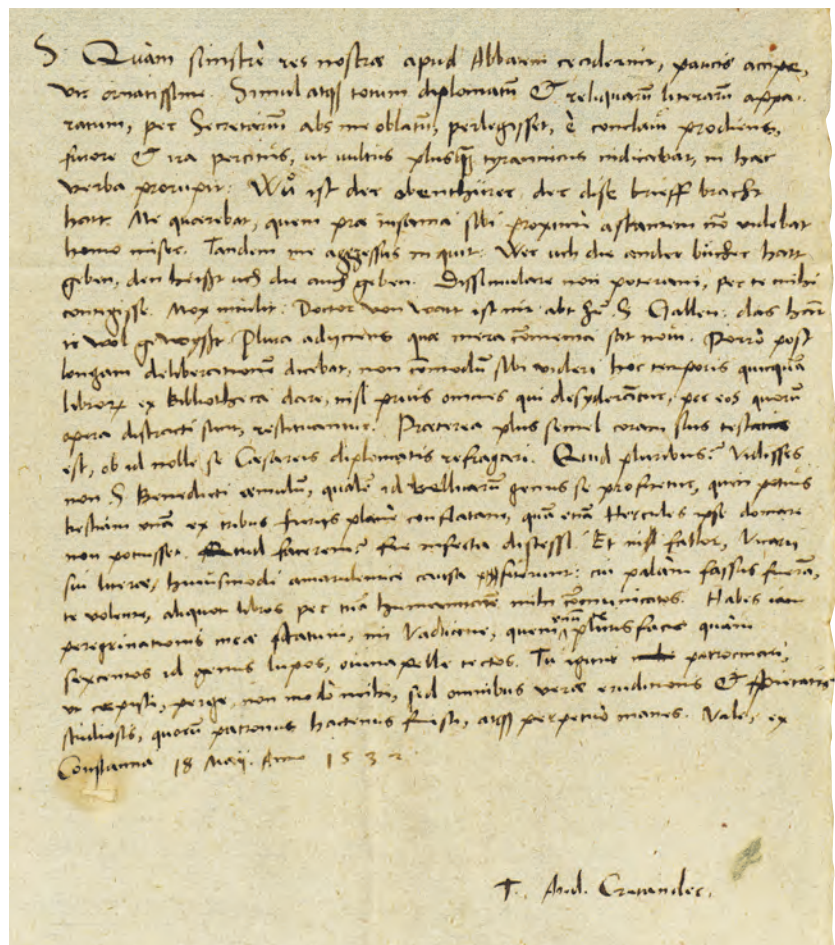 S. Quàm sinistrè res nostrae apud Abbatem ceciderint, paucis accipe,
vir ornatissime. Simul atq́ȝ totum diplomatū & reliquarū literarū appa-
ratum, per Secretariū abs me oblatū, perlegisset, è conclaui prodiens,
furore & ira percitus, ut uultus plusq̃ tyrannicus indicabat, in haec
verba prorupit: Wů ist der obenthürer der dise brieff bracht
hatt. Me quaerebat, quem prae insania sibi proximè astantem nō videbat
homo miser. Tandem me aggressus inquit: Wer uch die ander bücher hatt
geben, den heißt uch die auch geben. Dissimulare non poteram, per te mihi
contigisse. Mox intulit: Doctor von Watt ist mir abt zů S. Gallen: das hatt
er wol gewyßt. Plura adijciens quae mera cōmenta sat noui. Porrò post
longam deliberationē dicebat, non cōmodū sibi videri hoc temporis quicquā
librorū ex Bibliotheca dare, nisi prius omnes qui desyderātur, per eos quorū
opera distracti sunt, restituantur. Praeterea plus semel coram suis testatus
est, ob id nolle se Caesareis diplomatis refragari. Quid pluribus? Vidisses
non S. Benedicti aemulū, qualē id belluarū genus se profitetur, quin potius
bestiam vnā ex tribus furijs planè conflatam, quā etiā Hercules ipse domare
non potuisset. Quid facerem? Re infecta discessi. Et nisi fallor, Vicarij
sui literae, huiusmodi amarulentiae causa fuerunt: cui palàm fassus fuerā,
te volente, aliquot libros per tuā humanitatē mihi cōmunicatos. Habes iam
peregrinationis meae statum, mi Vadiane, quem enim pluris facis quàm
sexcentos id genus lupos, ouina pelle tectos. Tu igitur patrocinari,
ut coepisti, perge, non modò mihi, sed omnibus verae eruditionis & pietatis
studiosis, quorū patronus hactenus fuisti, atq́ȝ perpetuò manes. Vale, ex
Constantia 18 Maij. Anno 1532
T. And. Cratander.